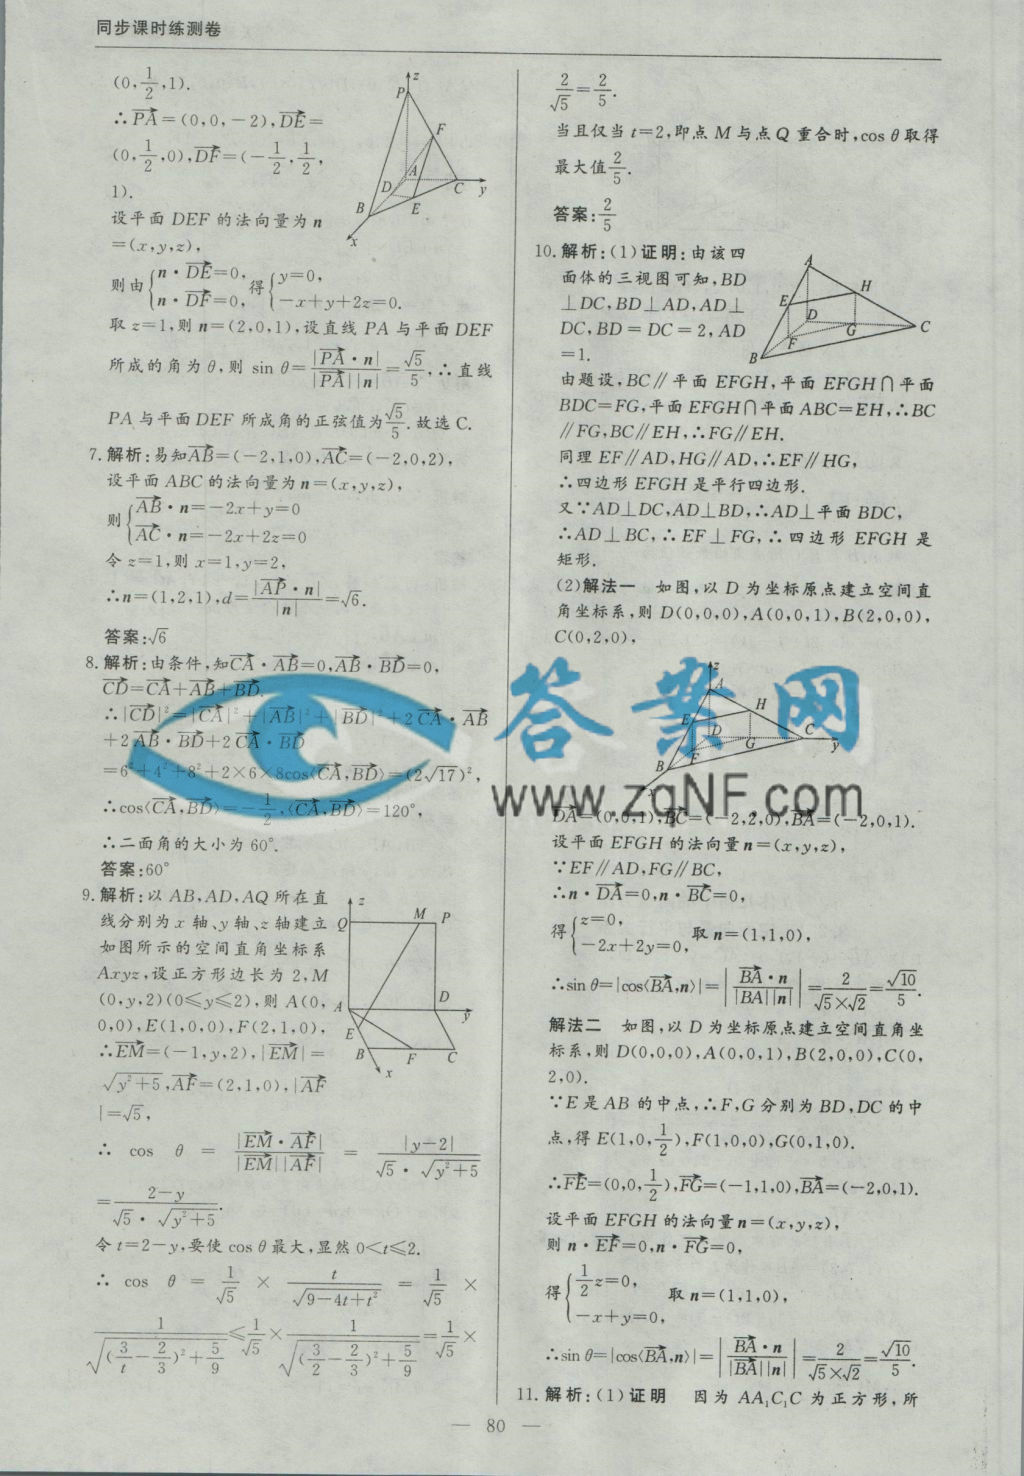 同步课时练测卷
(0,1/2,1).
∴PA=(0,0,-2),DE=
(0,1/2,0),DF=(-1/2,1/2,
1).
设平面 DEF 的法向量为 n
=(x,y,z),
则由{n·DE=0, n·DF=0, 得{y=0, -x+y+2z=0.
取 z=1,则 n=(2,0,1),设直线 PA 与平面 DEF
所成的角为 θ,则 sin θ=|PA·n|/|PA||n|=√5/5,∴直线
PA 与平面 DEF 所成角的正弦值为√5/5.故选 C.
7.解析:易知AB=(-2,1,0),AC=(-2,0,2),
设平面 ABC 的法向量为 n=(x,y,z),
则{AB·n=-2x+y=0 AC·n=-2x+2z=0
令 z=1,则 x=1,y=2,
∴n=(1,2,1),d=|AP·n|/|n|=√6.
答案:√6
8.解析:由条件,知CA·AB=0,AB·BD=0,
CD=CA+AB+BD.
∴|CD|²=|CA|²+|AB|²+|BD|²+2CA·AB
+2AB·BD+2CA·BD
=6²+4²+8²+2×6×8cos⟨CA,BD⟩=(2√17)²,
∴cos⟨CA,BD⟩=-1/2,⟨CA,BD⟩=120°,
∴二面角的大小为 60°.
答案:60°
9.解析:以 AB,AD,AQ 所在直
线分别为 x 轴、y 轴、z 轴建立
如图所示的空间直角坐标系
Axyz,设正方形边长为 2,M
(0,y,2)(0≤y≤2),则 A(0,
0,0),E(1,0,0),F(2,1,0),
∴EM=(-1,y,2),|EM|=
√(y²+5),AF=(2,1,0),|AF
|=√5,
∴ cos θ = |EM·AF|/|EM||AF| = |y-2|/(√5·√(y²+5))
=(2-y)/(√5·√(y²+5)).
令 t=2-y,要使 cos θ 最大,显然 0<t≤2.
∴ cos θ = 1/√5 × t/√(9-4t+t²) = 1/√5 ×
1/√((3/t-2/3)²+5/9)≤1/√5×1/√((3/2-2/3)²+5/9)=1/√5×
P
z
F
A
D
C
y
B
E
x
z
Q
M
P
A
D
y
E
B
F
C
x
2/√5=2/5.
当且仅当 t=2,即点 M 与点 Q 重合时,cos θ 取得
最大值2/5.
答案:2/5
10.解析:(1)证明:由该四
面体的三视图可知,BD
⊥DC,BD⊥AD,AD⊥
DC,BD=DC=2,AD
=1.
由题设,BC∥平面 EFGH,平面 EFGH∩平面
BDC=FG,平面 EFGH∩平面 ABC=EH,∴BC
∥FG,BC∥EH,∴FG∥EH.
同理 EF∥AD,HG∥AD,∴EF∥HG,
∴四边形 EFGH 是平行四边形.
又∵AD⊥DC,AD⊥BD,∴AD⊥平面 BDC,
∴AD⊥BC,∴EF⊥FG,∴四边形 EFGH 是
矩形.
(2)解法一 如图,以 D 为坐标原点建立空间直
角坐标系,则 D(0,0,0),A(0,0,1),B(2,0,0),
C(0,2,0),
A
E
H
D
G
C
F
B
z
A
E
H
D
G
C
y
F
B
x
答案网
www.zqNF.com
DA=(0,0,1),BC=(-2,2,0),BA=(-2,0,1).
设平面 EFGH 的法向量 n=(x,y,z),
∵EF∥AD,FG∥BC,
∴n·DA=0,n·BC=0,
得{z=0, -2x+2y=0, 取 n=(1,1,0),
∴sin θ=|cos⟨BA,n⟩|=|BA·n/|BA||n||=2/(√5×√2)=√10/5.
解法二 如图,以 D 为坐标原点建立空间直角坐
标系,则 D(0,0,0),A(0,0,1),B(2,0,0),C(0,
2,0).
∵E 是 AB 的中点,∴F,G 分别为 BD,DC 的中
点,得 E(1,0,1/2),F(1,0,0),G(0,1,0).
∴FE=(0,0,1/2),FG=(-1,1,0),BA=(-2,0,1).
设平面 EFGH 的法向量 n=(x,y,z),
则 n·EF=0,n·FG=0,
得{1/2z=0, -x+y=0, 取 n=(1,1,0),
∴sin θ=|cos⟨BA,n⟩|=|BA·n/|BA||n||=2/(√5×√2)=√10/5.
11.解析:(1)证明 因为 AA₁C₁C 为正方形,所
— 80 —